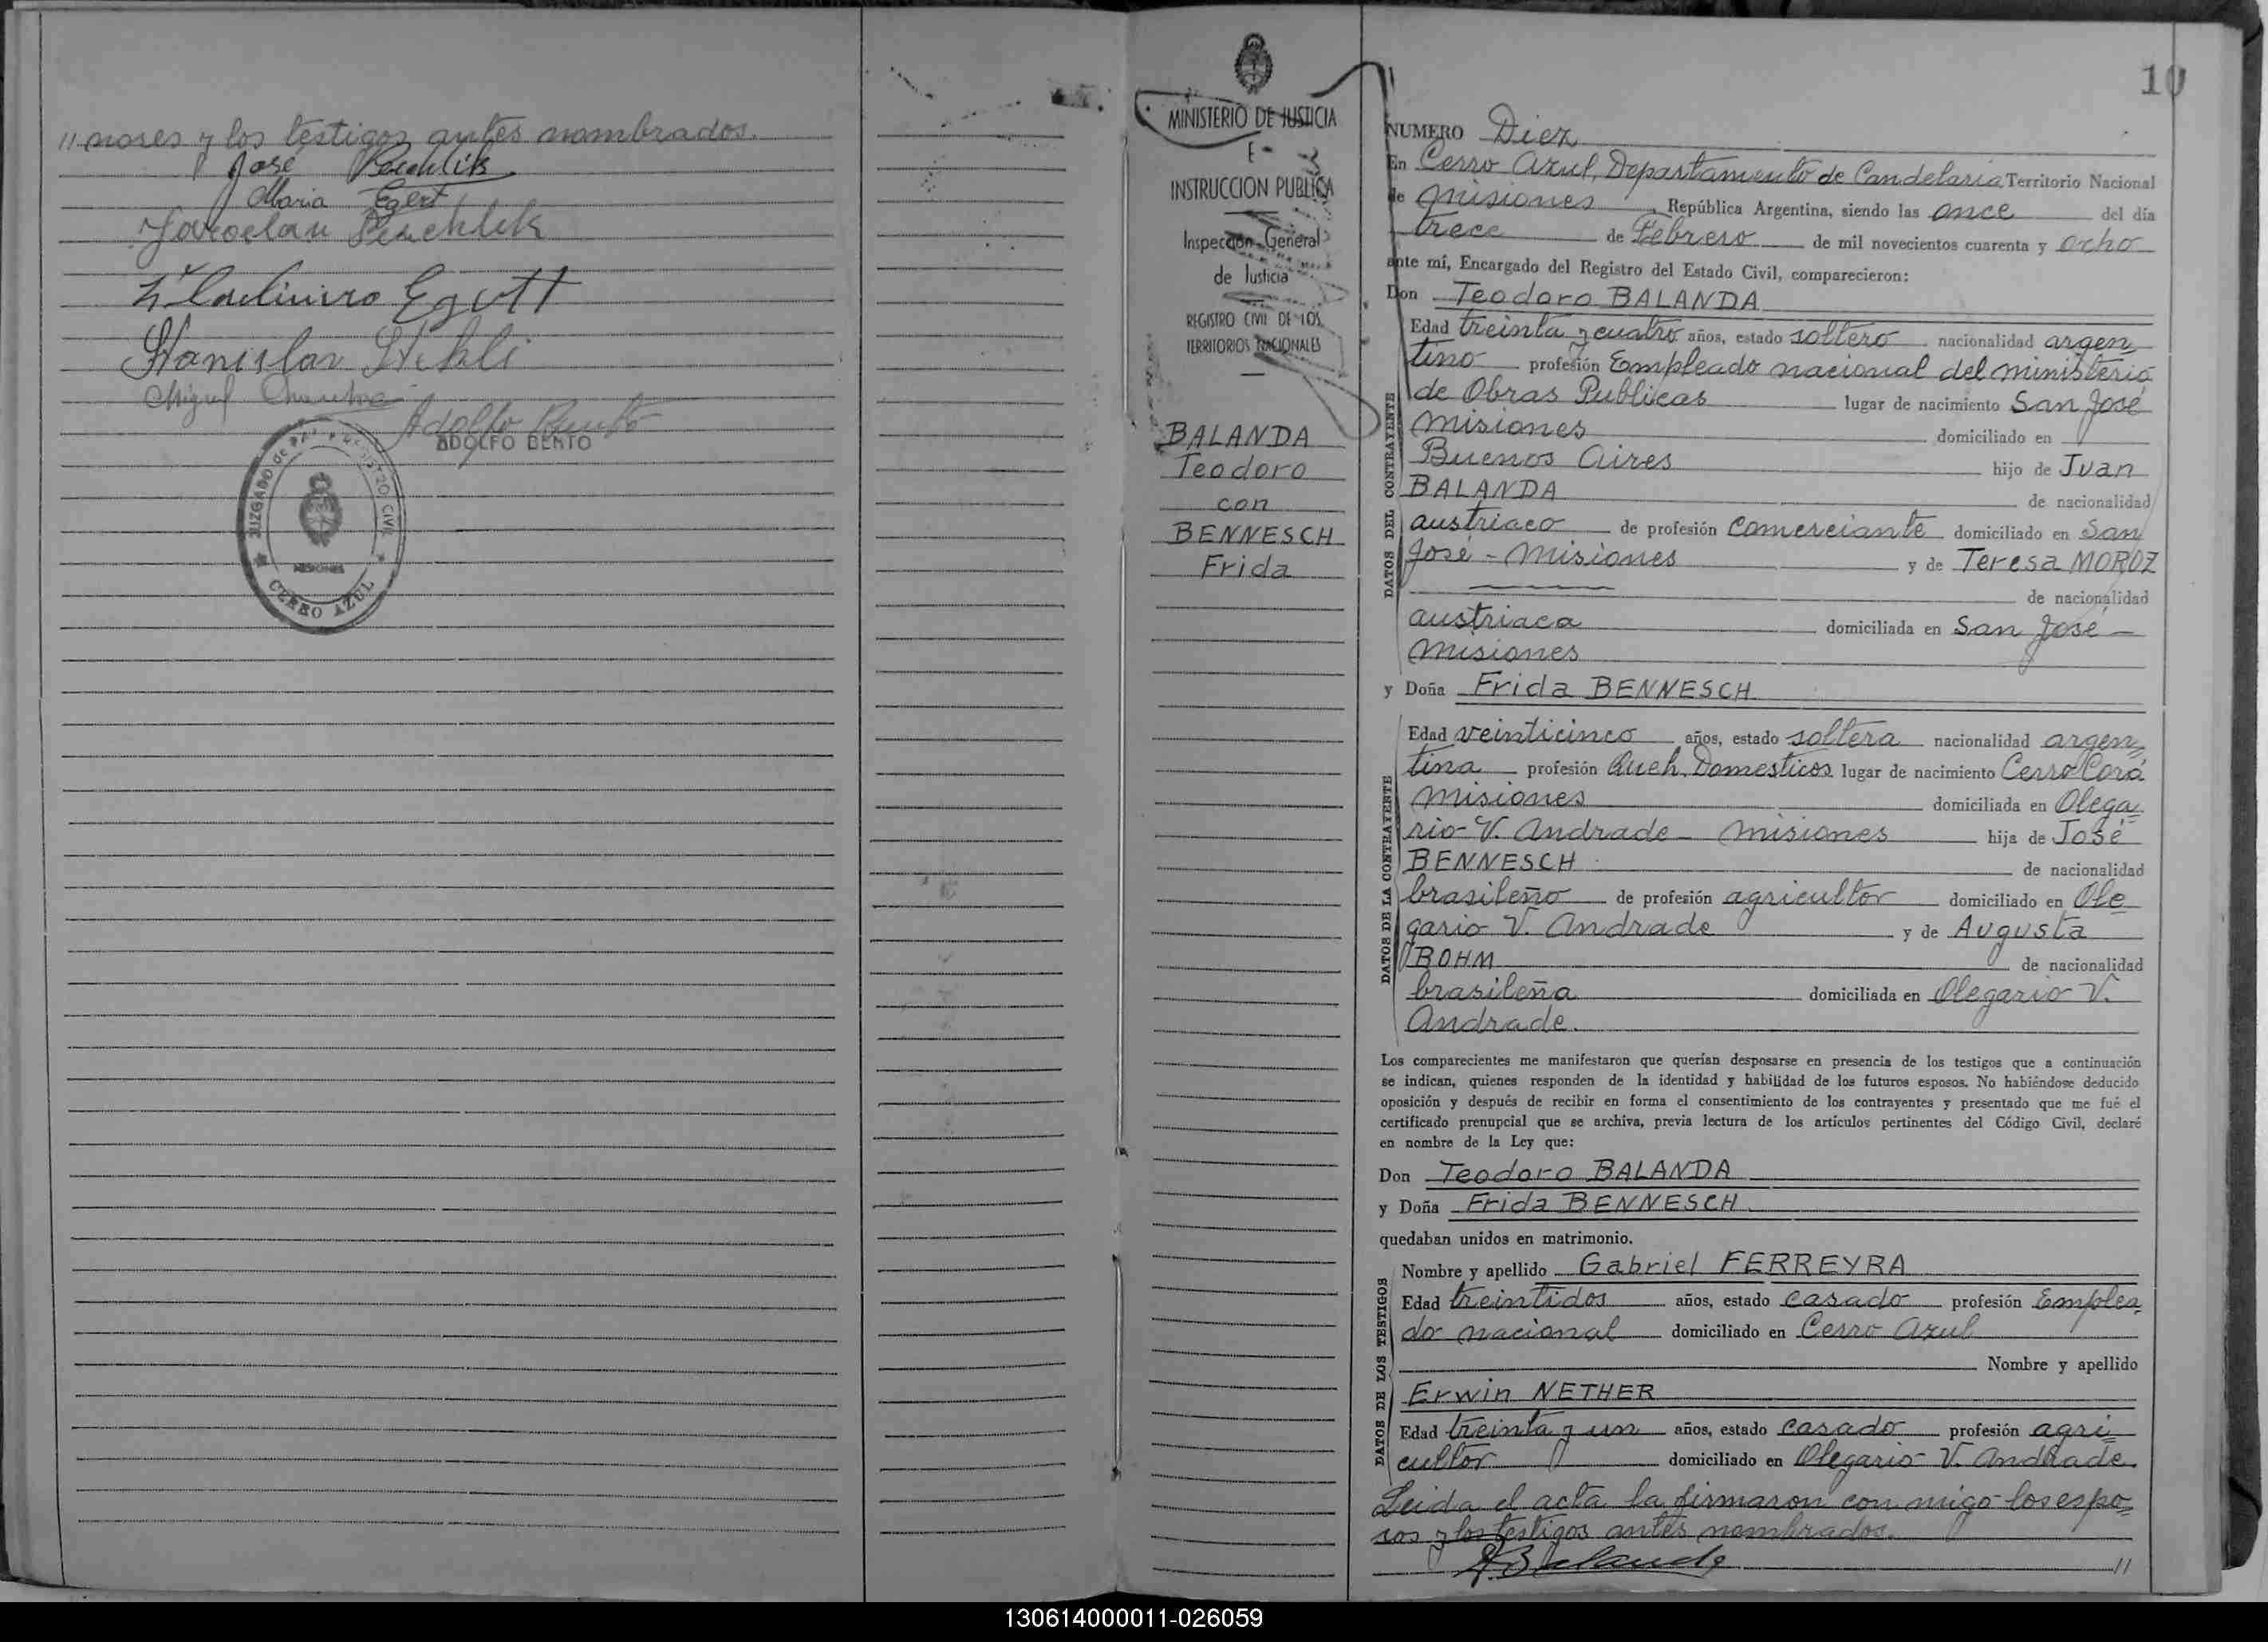 // nores y los testigos antes nombrados.
José Pecehlik
Maria Egert
Jaroslau
Stanislav
Miguel
Adolfo Bento
ADOLFO BENTO
JUZGADO de PAZ y REGISTRO CIVIL
MISIONES
CERRO AZUL
MINISTERIO DE JUSTICIA
E
INSTRUCCION PUBLICA
Inspección General
de Justicia
REGISTRO CIVIL DE LOS
TERRITORIOS NACIONALES
BALANDA
Teodoro
con
BENNESCH
Frida
10
NUMERO Diez
En Cerro Azul, Departamento de Candelaria, Territorio Nacional
de Misiones, República Argentina, siendo las once del día
trece de Febrero de mil novecientos cuarenta y ocho
ante mí, Encargado del Registro del Estado Civil, comparecieron:
Don Teodoro BALANDA
DATOS DEL CONTRAYENTE
Edad treinta y cuatro años, estado soltero nacionalidad argen=
tino profesión Empleado nacional del ministerio
de Obras Publicas lugar de nacimiento San José
Misiones domiciliado en
Buenos Aires hijo de Juan
BALANDA de nacionalidad
austriaco de profesión comerciante domiciliado en San
José - Misiones y de Teresa MOROZ
de nacionalidad
austriaca domiciliada en San José -
Misiones
y Doña Frida BENNESCH
DATOS DE LA CONTRAYENTE
Edad veinticinco años, estado soltera nacionalidad argen=
tina profesión Queh. Domesticos lugar de nacimiento Cerro Corá
Misiones domiciliada en Olega=
rio V. Andrade - Misiones hija de José
BENNESCH de nacionalidad
brasileño de profesión agricultor domiciliado en Ole=
gario V. Andrade y de Augusta
BOHM de nacionalidad
brasileña domiciliada en Olegario V.
Andrade.
Los comparecientes me manifestaron que querían desposarse en presencia de los testigos que a continuación
se indican, quienes responden de la identidad y habilidad de los futuros esposos. No habiéndose deducido
oposición y después de recibir en forma el consentimiento de los contrayentes y presentado que me fué el
certificado prenupcial que se archiva, previa lectura de los artículos pertinentes del Código Civil, declaré
en nombre de la Ley que:
Don Teodoro BALANDA
y Doña Frida BENNESCH
quedaban unidos en matrimonio.
DATOS DE LOS TESTIGOS
Nombre y apellido Gabriel FERREYRA
Edad treintidos años, estado casado profesión Emplea=
do nacional domiciliado en Cerro Azul
Nombre y apellido
Erwin NETHER
Edad treinta y un años, estado casado profesión agri=
cultor domiciliado en Olegario V. Andrade.
Leida el acta la firmaron con migo los espo=
sos y los testigos antes nombrados.
//
130614000011-026059